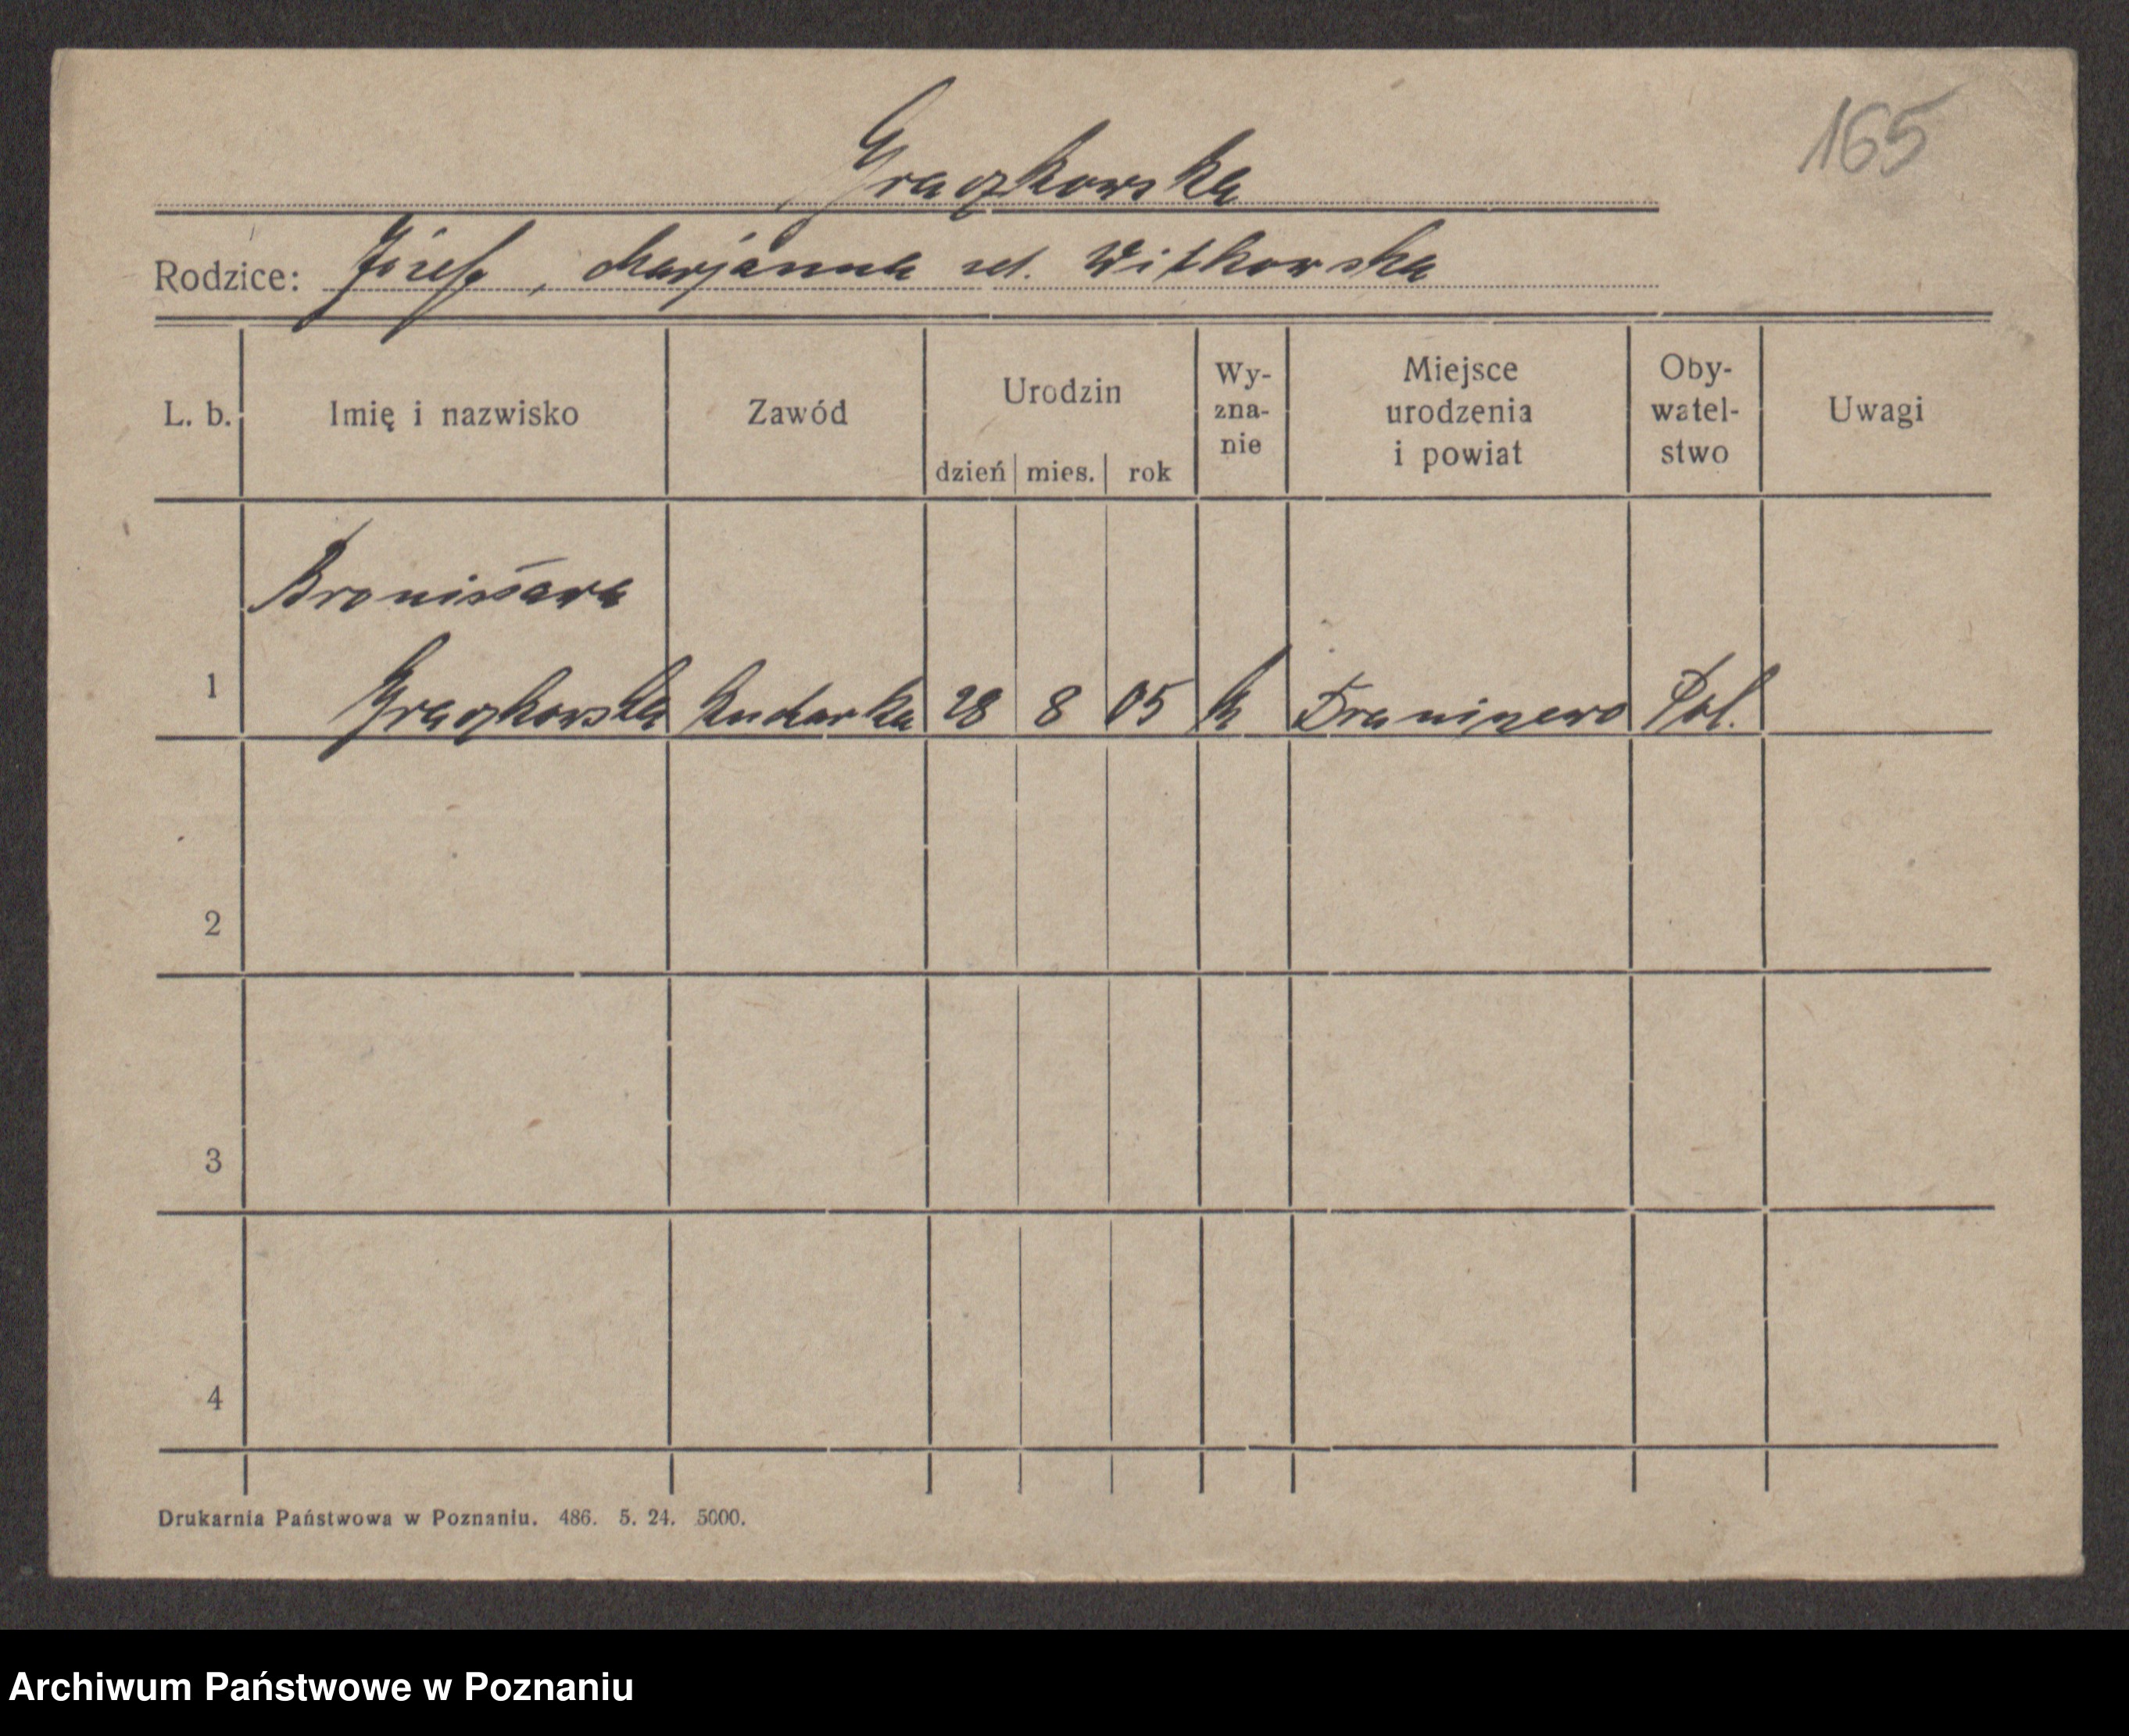 165
Graczkowska
Rodzice: Józef, Marjanna zd. Witkowska
L. b. Imię i nazwisko Zawód Urodzin dzień mies. rok Wy-zna-nie Miejsce urodzenia i powiat Oby-watel-stwo Uwagi
Bronisława
1 Graczkowska Kucharka 28 8 05 k Franiszewo Pol.
2
3
4
Drukarnia Państwowa w Poznaniu. 486. 5. 24. 5000.
Archiwum Państwowe w Poznaniu